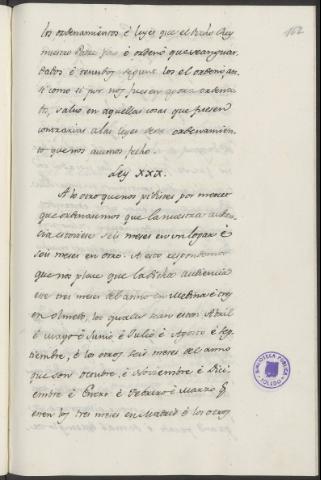 162
los ordenamientos é leyes que el dicho Rey
nuestro Padre fizo é ordenó que sean guar-
dados é tenudos segunt los él ordenó an-
si como si por nos fuesen agora ordena-
do, salvo en aquellas cosas que fuesen
contrarias a las leyes deste ordenamien-
to que nos avemos fecho.
Ley XXX.
A lo otro que nos pidieron por merced
que ordenasemos que la nuestra audien-
cia estoviese seis meses en un logar é
seis meses en otro. A esto respondemos
que nos place que la dicha audiencia
esté tres meses del año en Medina é tres
en Olmedo, los quales sean estos: Abril
é mayo é Junio é Julio é Agosto é Sep-
tiembre, é los otros seis meses del año
que son octubre, é Noviembre é Dici-
embre é Enero é Febrero é Marzo
esten los tres meses en Madrid é los otros
BIBLIOTECA PUBLICA
TOLEDO